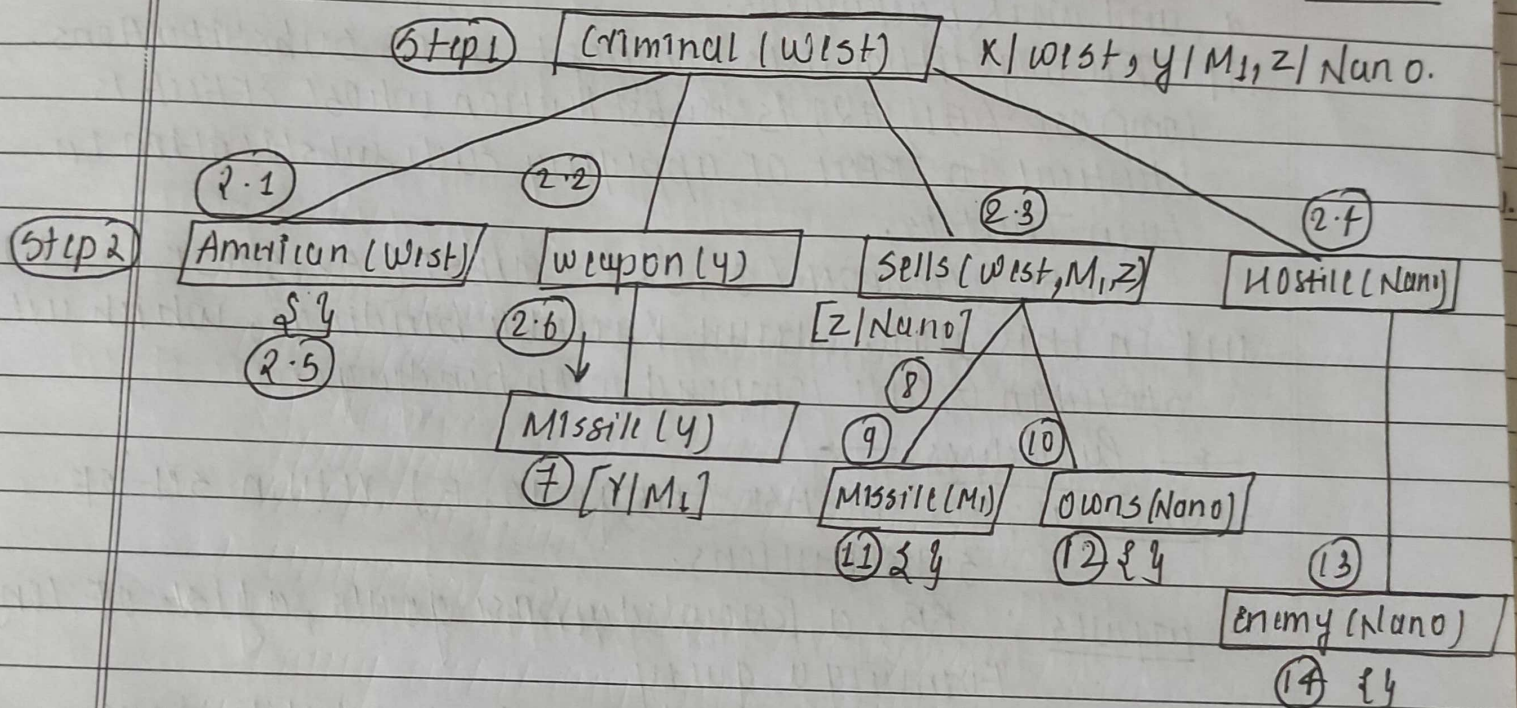 Step1 Criminal (West) X/West, Y/M1, Z/Nano.
2.1 2.2 2.3 2.4
Step2 American (West) Weapon(y) Sells(West,M1,Z) Hostile(Nano)
{} 2.6 [Z/Nano]
2.5 8
Missile(y) 9 10
7 [Y/M1] Missile(M1) Owns(Nano)
11 {} 12 {} 13
Enemy (Nano)
14 {}